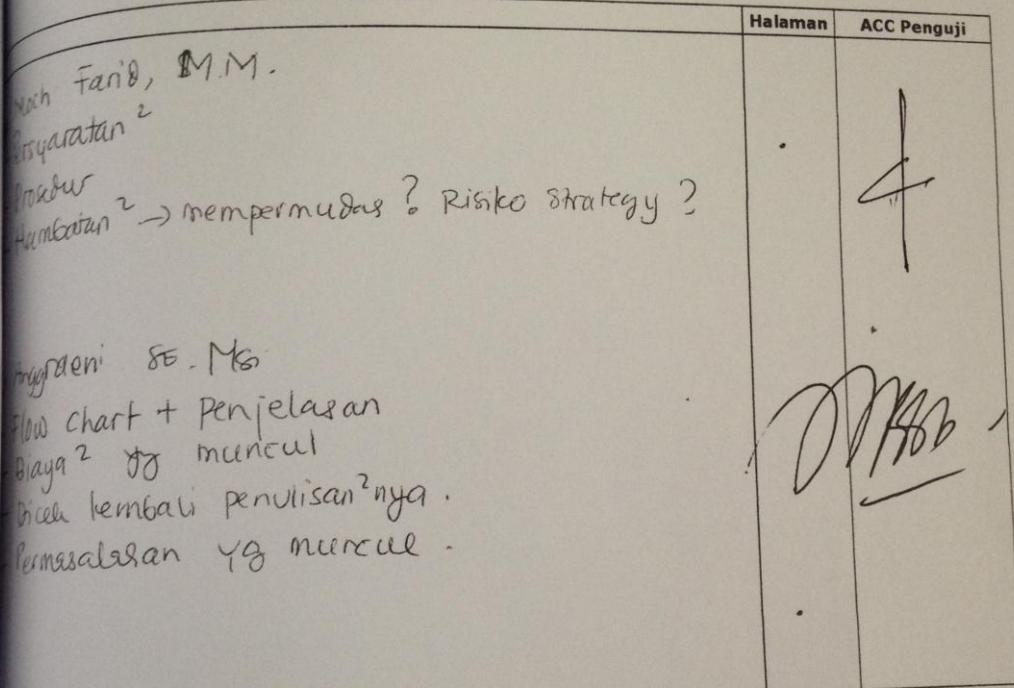 Halaman ACC Penguji
Moch Farid, M.M.
Persyaratan²
Prosedur
Hambatan² → mempermudah? Risiko Strategy?
Anggraeni SE. MSi
Flow chart + penjelasan
- Biaya² yg muncul
- Dicek kembali penulisan²nya.
- Permasalahan yg muncul.